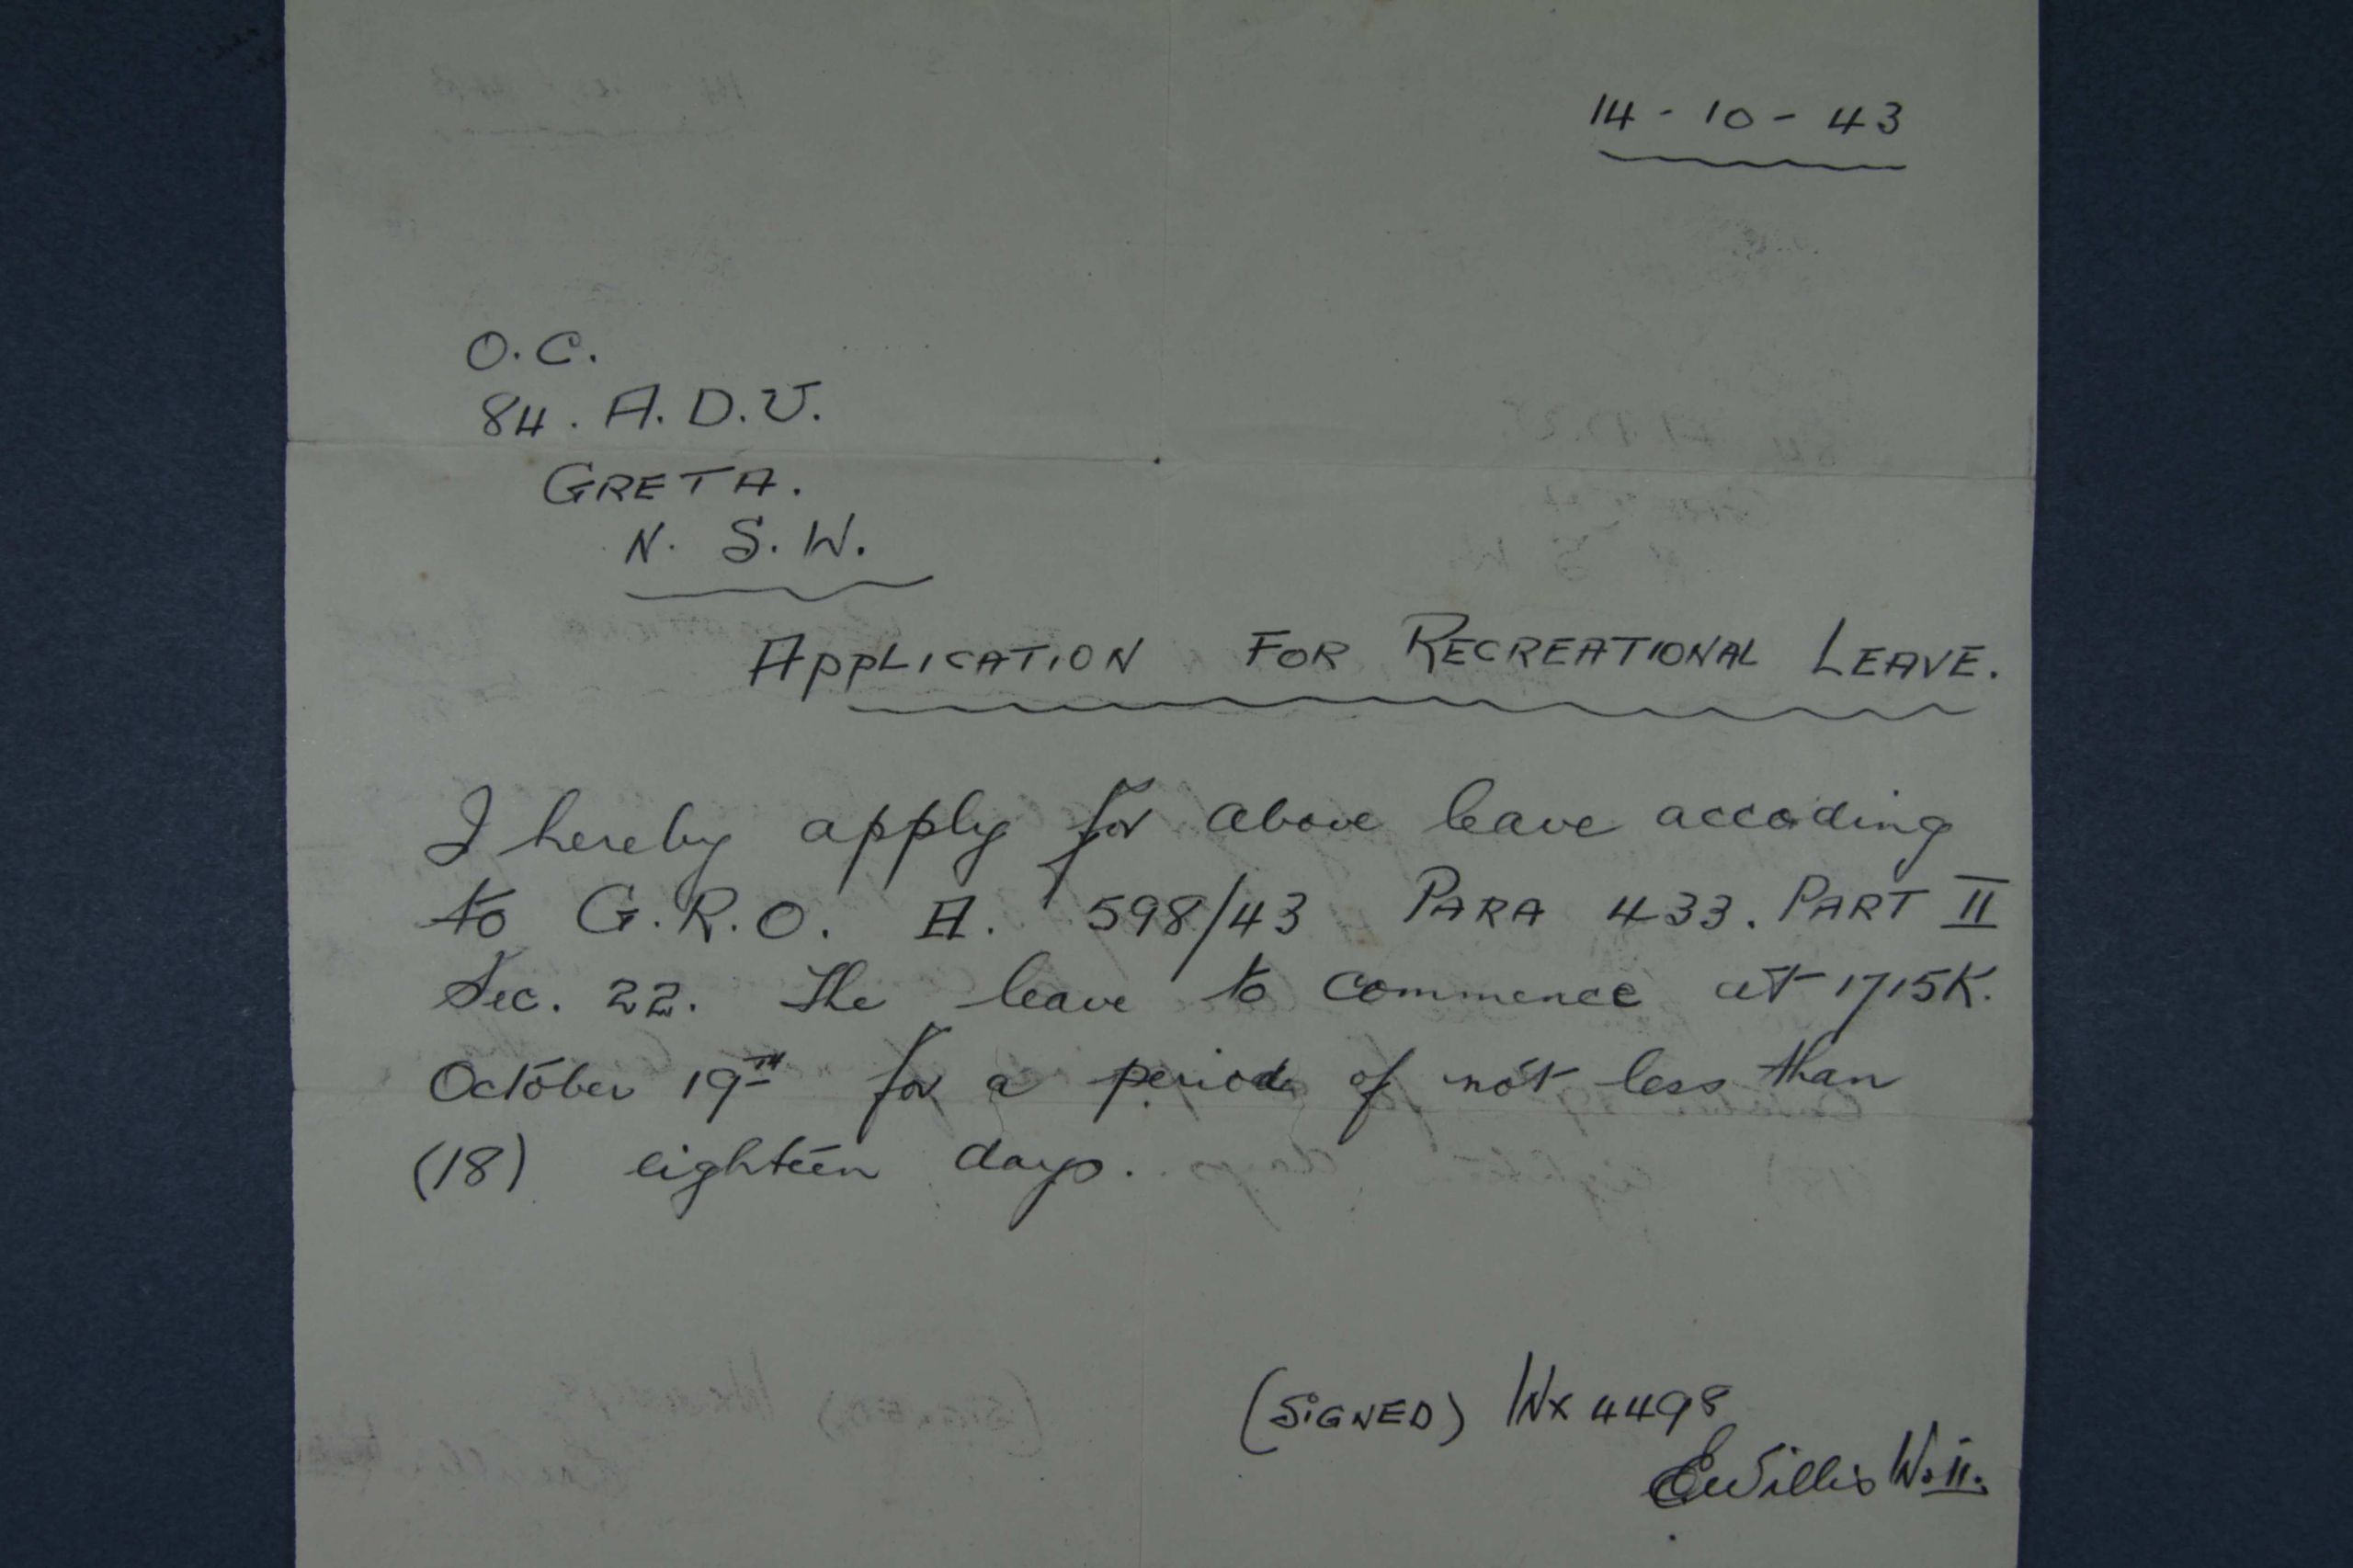 14-10-43
O.C.
84. A.D.U.
GRETA.
N. S.W.
APPLICATION FOR RECREATIONAL LEAVE.
I hereby apply for above leave accoding
to G.R.O. A. 598/43 PARA 433. PART II
Sec. 22. The leave to commence at 1715K.
October 19TH for a period of not less than
(18) eighteen days.
(SIGNED) WX 4498
EWillis W.II.